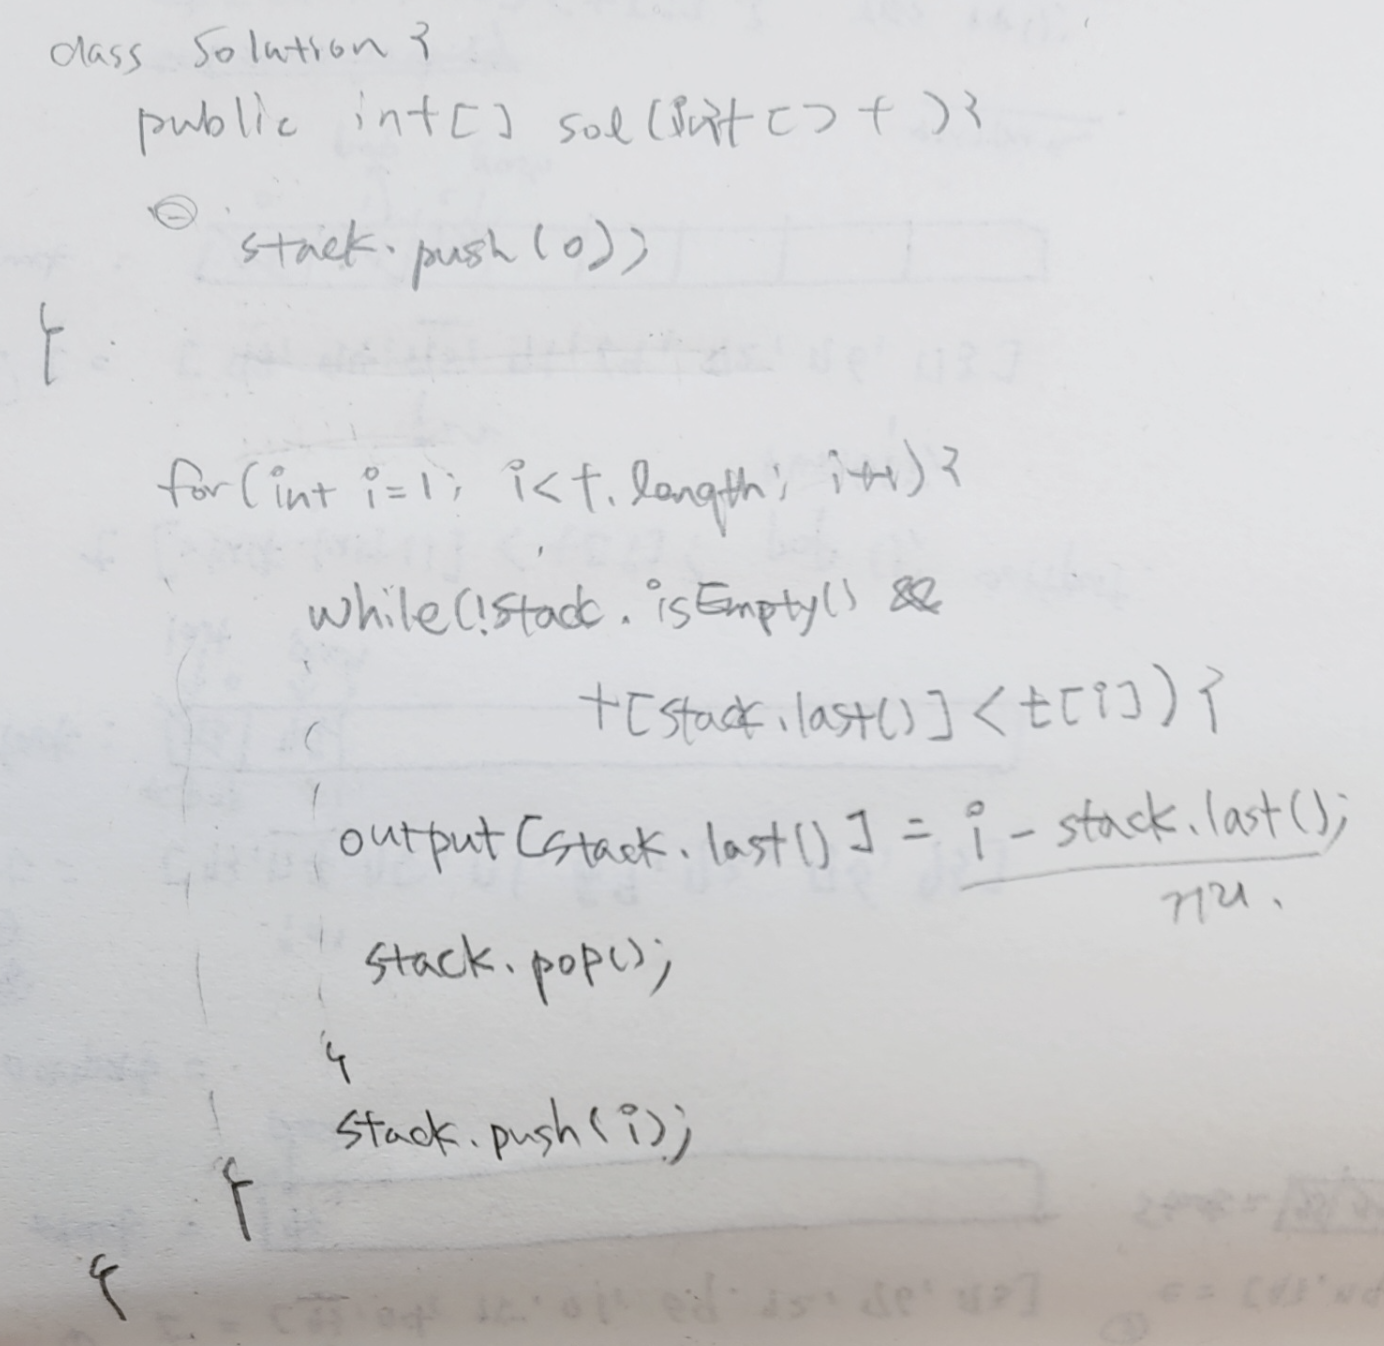 class Solution {
public int[] sol(int[] t){
stack.push(0);
}
for(int i=1; i<t.length; i++){
while(!stack.isEmpty() &&
t[stack.last()] < t[i]){
output[stack.last()] = i - stack.last();
거리.
stack.pop();
}
stack.push(i);
}
}